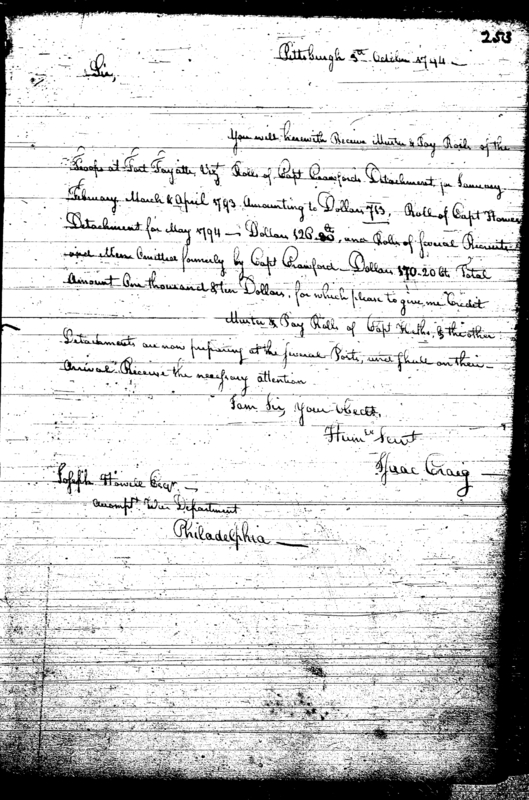 253
Pittsburgh 5th October 1794 —
Sir,
You will herewith Receive Muster & Pay Rolls of the
Troops at Fort Fayette, Vizt Rolls of Capt Crawfords Detachment for January
February March & April 1793 Amounting to Dollars 713, Roll of Capt Howes
Detachment for May 1794 — Dollars 126. and Rolls of several Recruits
and Men Omitted formerly by Capt Crawford — Dollars 170.20 Ct. Total
Amount One thousand & ten Dollars, for which please to give me Credit
Muster & Pay Rolls of Capt & the other
Detachments are now preparing at the several Posts, and shall on their
Arrival Receive the necessary attention
I am Sir, Your Obedt.
Hum Servt
Isaac Craig
Joseph Howell Esqr. —
Accompt War Department
Philadelphia —